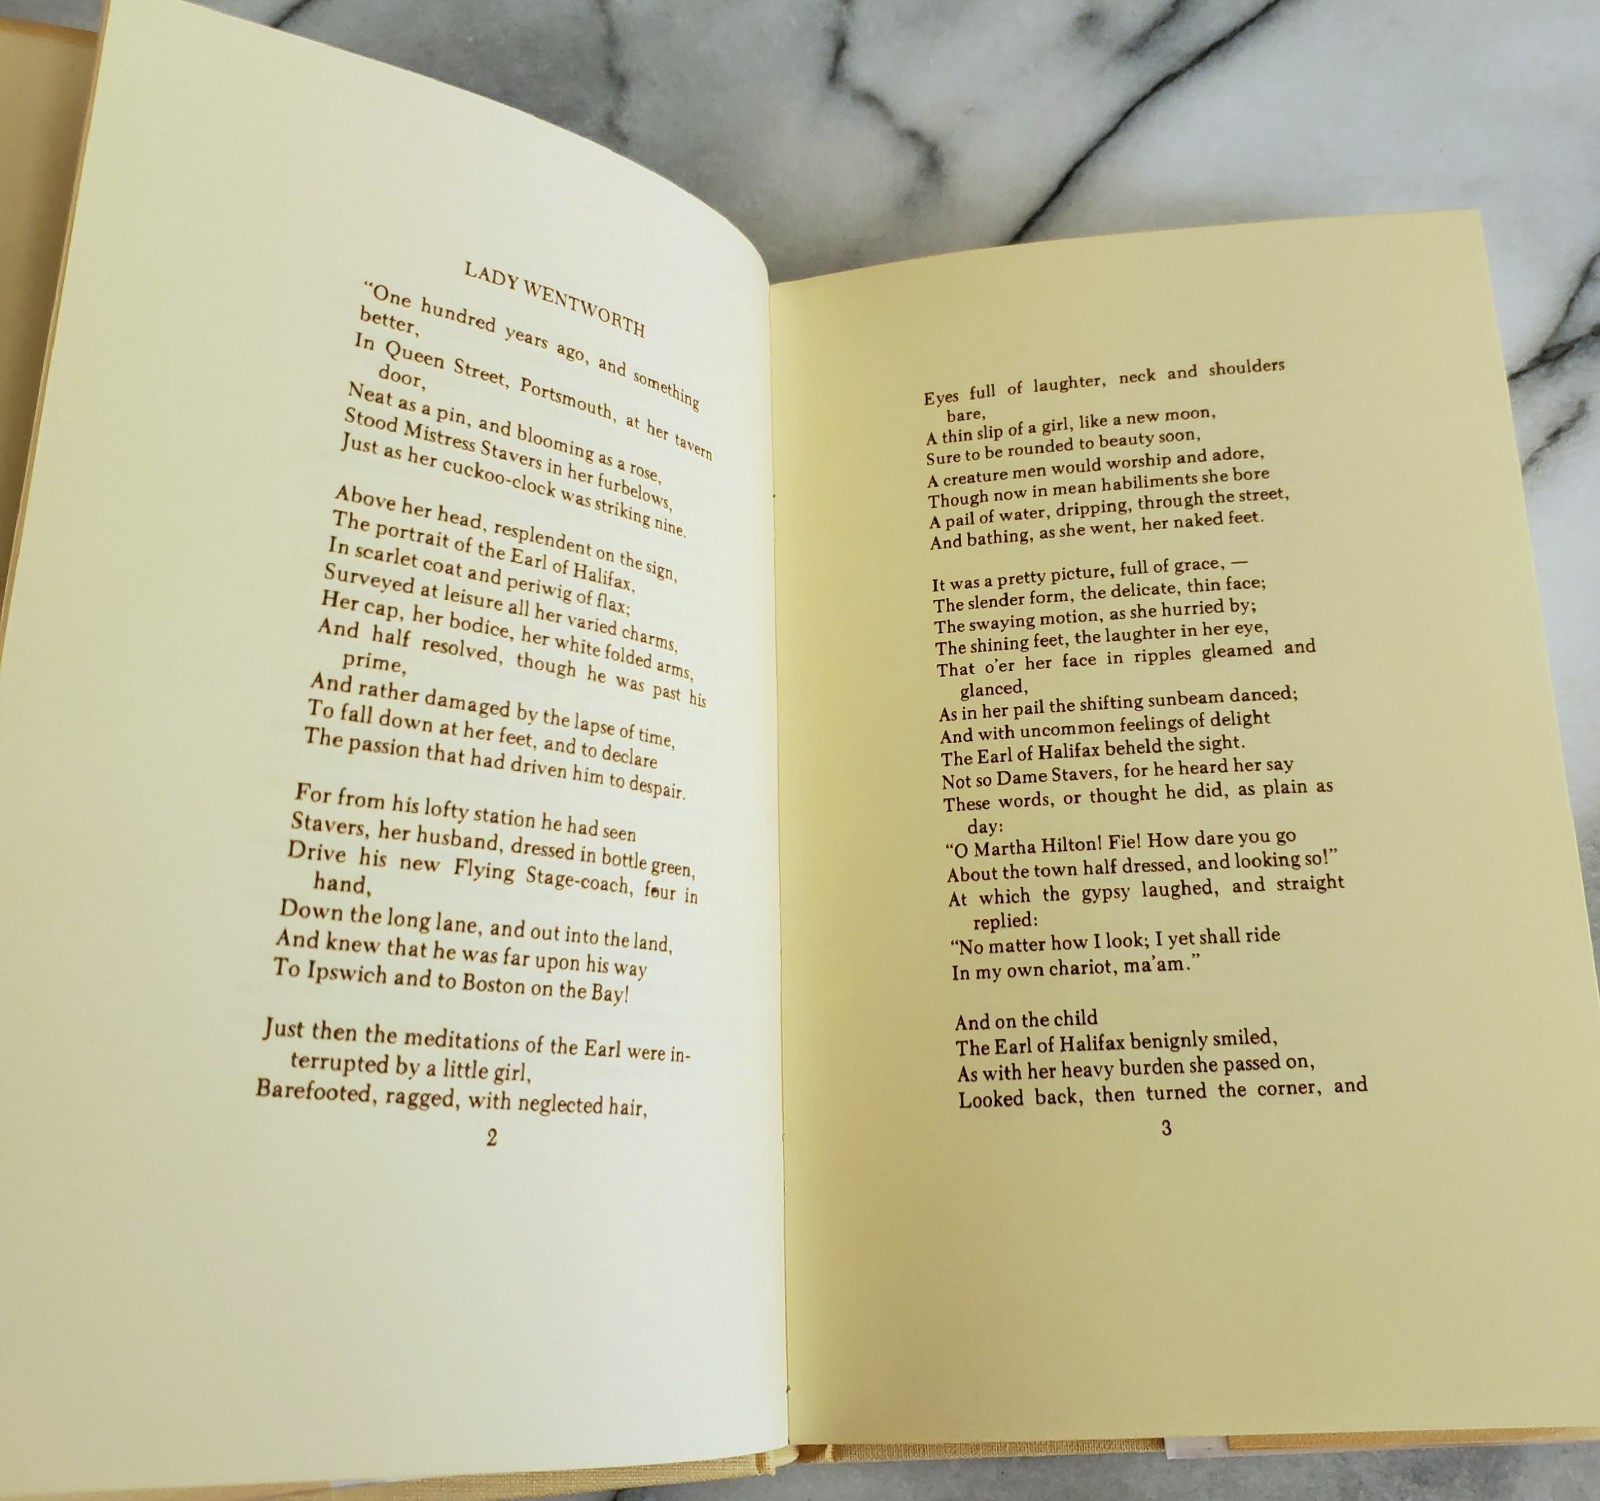 LADY WENTWORTH
“One hundred years ago, and something
better,
In Queen Street, Portsmouth, at her tavern
door,
Neat as a pin, and blooming as a rose,
Stood Mistress Stavers in her furbelows,
Just as her cuckoo-clock was striking nine.
Above her head, resplendent on the sign,
The portrait of the Earl of Halifax,
In scarlet coat and periwig of flax;
Surveyed at leisure all her varied charms,
Her cap, her bodice, her white folded arms,
And half resolved, though he was past his
prime,
And rather damaged by the lapse of time,
To fall down at her feet, and to declare
The passion that had driven him to despair.
For from his lofty station he had seen
Stavers, her husband, dressed in bottle green,
Drive his new Flying Stage-coach, four in
hand,
Down the long lane, and out into the land,
And knew that he was far upon his way
To Ipswich and to Boston on the Bay!
Just then the meditations of the Earl were in-
terrupted by a little girl,
Barefooted, ragged, with neglected hair,
2
Eyes full of laughter, neck and shoulders
bare,
A thin slip of a girl, like a new moon,
Sure to be rounded to beauty soon,
A creature men would worship and adore,
Though now in mean habiliments she bore
A pail of water, dripping, through the street,
And bathing, as she went, her naked feet.
It was a pretty picture, full of grace, —
The slender form, the delicate, thin face;
The swaying motion, as she hurried by;
The shining feet, the laughter in her eye,
That o'er her face in ripples gleamed and
glanced,
As in her pail the shifting sunbeam danced;
And with uncommon feelings of delight
The Earl of Halifax beheld the sight.
Not so Dame Stavers, for he heard her say
These words, or thought he did, as plain as
day:
“O Martha Hilton! Fie! How dare you go
About the town half dressed, and looking so!”
At which the gypsy laughed, and straight
replied:
“No matter how I look; I yet shall ride
In my own chariot, ma'am.”
And on the child
The Earl of Halifax benignly smiled,
As with her heavy burden she passed on,
Looked back, then turned the corner, and
3